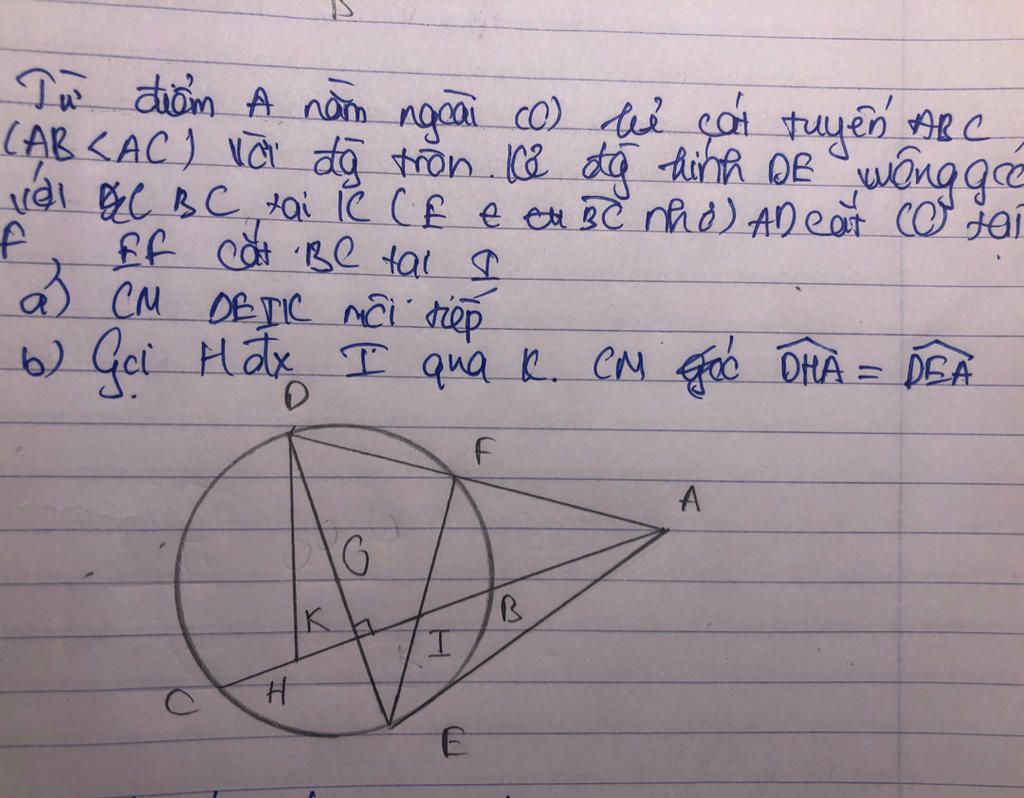 Từ điểm A nằm ngoài (O) kẻ cát tuyến ABC
(AB < AC) với đg tròn. Kẻ đg kính DE vuông gó
với BC tại K (E ∈ cu BC nhỏ) AD cắt (O) tại
F, EF cắt BC tại I
a) CM DEIK nội tiếp
b) Gọi H đx I qua K. CM góc DHA = DEA
D
F
A
O
K
B
I
C
H
E